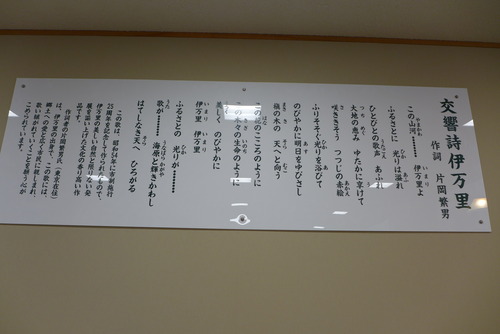 交響詩伊万里
作詞 片岡繁男
この山河………伊万里よ
ふるさとに 光りは溢れ
ひとびとの歌声 あふれ
大地の恵み ゆたかに享けて
咲ききそう つつじの赤絵
ふりそそぐ光りを浴びて
のびやかに明日をゆびさし
楠の木の 天へと向う
このこころのように
この木々の生命のように
美しく のびやかに
伊万里 伊万里
ふるさとの 光りが………
歌が………海原と輝きかわし
はてしなき天へ ひろがる
この歌は、昭和54年に市制施行
25周年を記念して作られたもので、
伊万里の美しい自然と限りない発
展を謳い上げた文化の香り高い作
品です。
作詞者の片岡繁男氏(東京在住)
は、伊万里の出身で、この歌には、
郷土への愛と広く市民に親しまれ、
歌い継がれてゆくことを願う心が
こめられています。